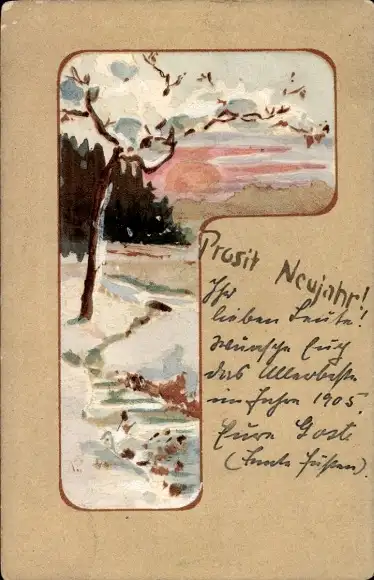 Prosit Neujahr!
Ihr
lieben Leute!
Wünsche Euch
das Allerbeste
im Jahre 1905.
Eure
(Tante